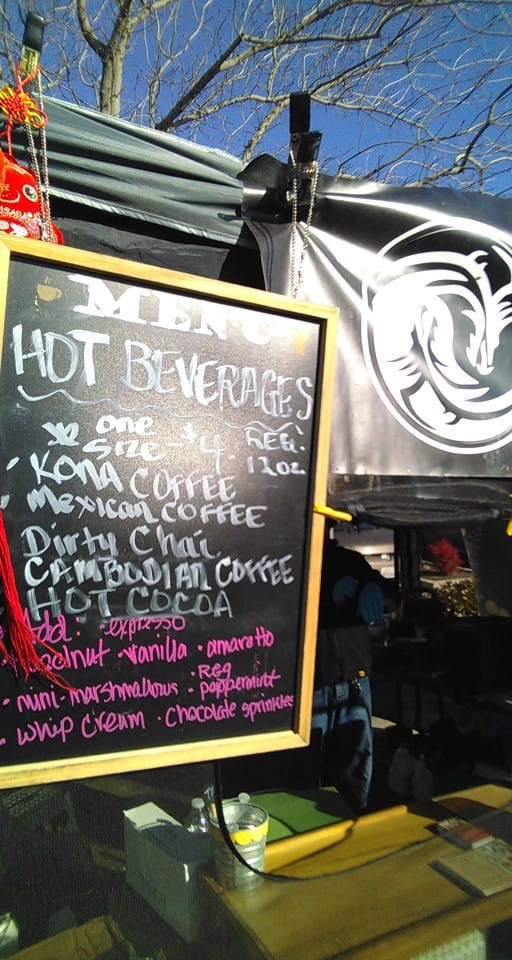 MENU
HOT BEVERAGES
one
Size - $4. REG.
12oz.
• KONA COFFEE
Mexican COFFEE
Dirty Chai
CAMBODIAN COFFEE
HOT COCOA
Add: • expresso
• vanilla • amaretto
• mini-marshmallows • Reg • peppermint
• whip cream • chocolate sprinkles